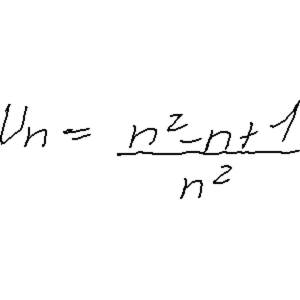 Un = (n² - n + 1) / n²